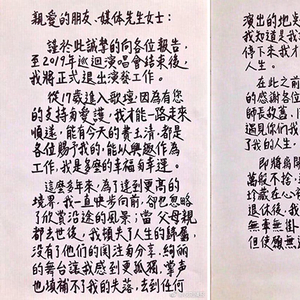 親愛的朋友、媒体先生女士:
謹於此誠摯的向各位報告,
至2019年巡迴演唱會結束後,
我將正式退出演藝工作。
從17歲進入歌壇,因為有您
的支持與愛護,我才能一路走來
順遂,能有今天的費玉清,都是
各位賜予我的,能以興趣作為
工作,我是多麼的幸福與幸運。
這麼多年來,為了達到更高的
境界,我一直快步向前,卻也忽略
了欣賞沿途的風景;當父母親
都去世後,我頓失了人生的歸屬,
沒有了他們的關注與分享,絢麗
的舞台讓我感到更孤獨,掌声
也填補不了我的失落,去到任何
演出的地
我知道是我
停下來我才
人生。
在此之前
的感謝各位
師長故舊,
遇見你們我
了我的人生,
即將扇
萬般不捨,
珍藏在心
退休後,我
無牽無掛,
但使願無違